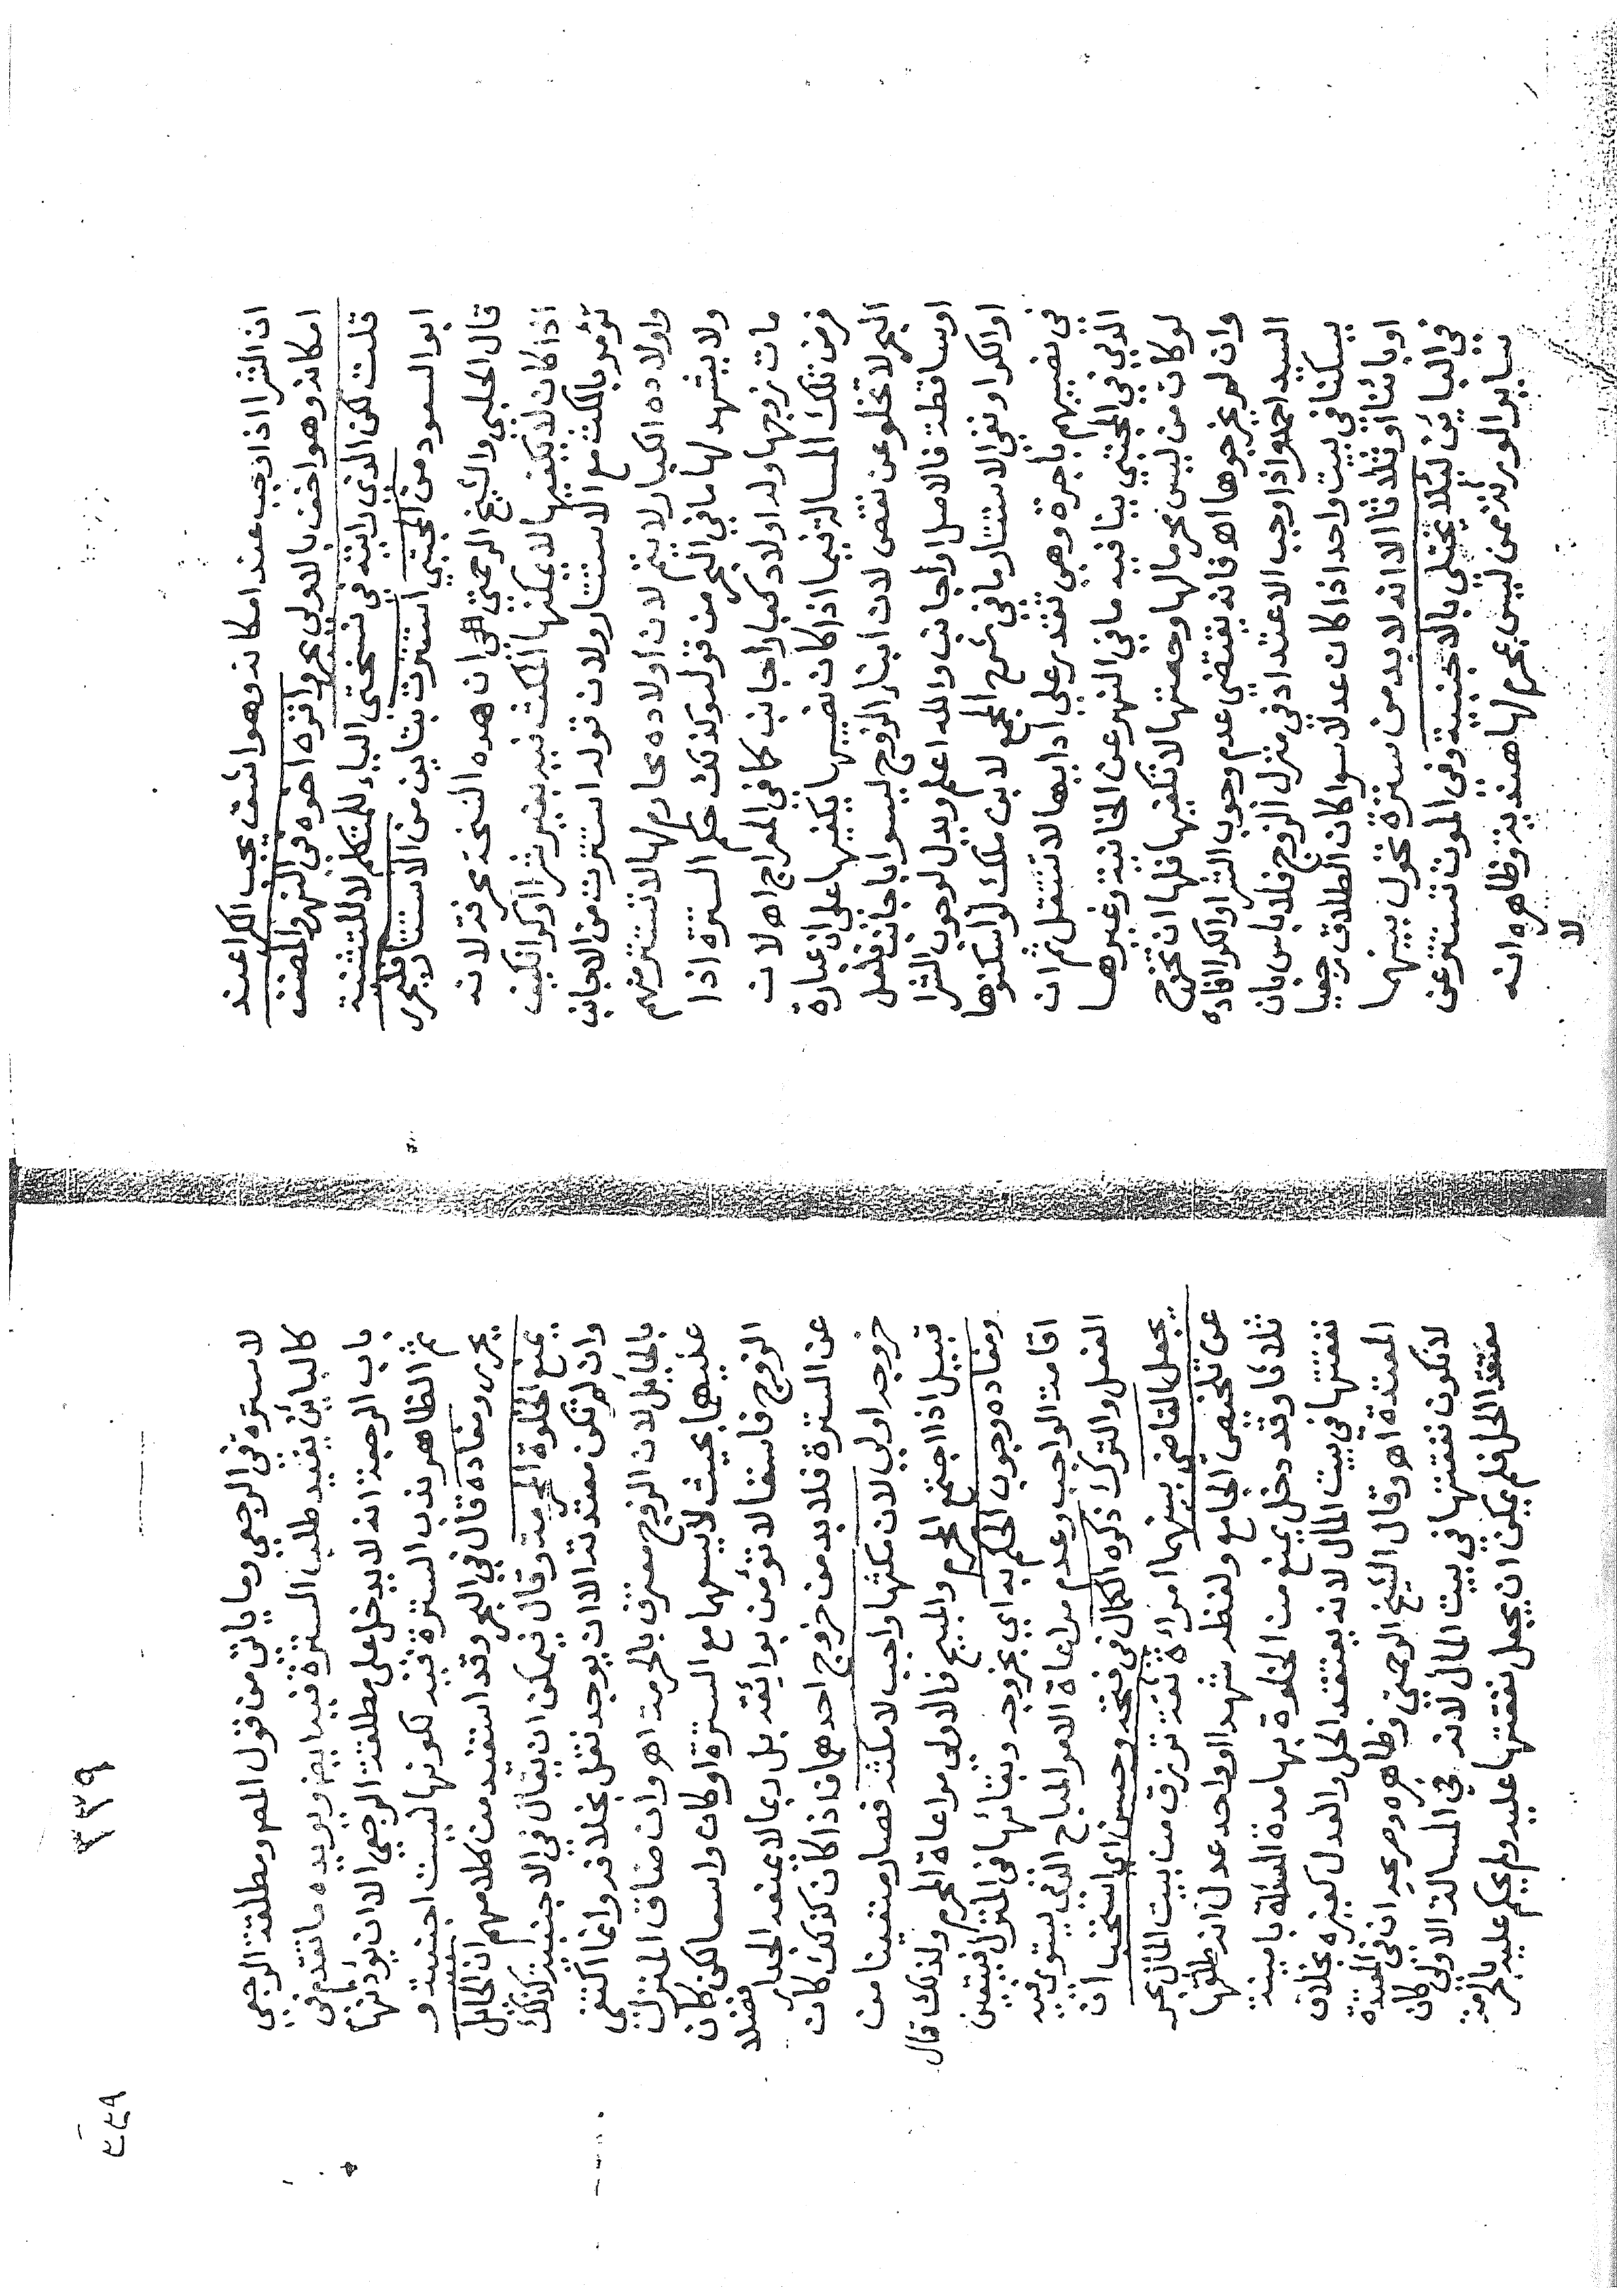 ان الشرا اذا وجب عند امكانه وهو اشق يجب الكرا عند
امكانه وهو اخف بالاولى بحر واقره اخوه في النهر والمصنف
قلت لكن الذي رايته في نسختي الياء للمتكلم لا للتثنية
ابو السعود من المجتبي استترت بتاين من الاستتار فليحرر
قال الحلبي والشيخ الرحمتي ان هذه النسخة محرفة لانه
اذا كان لا يكفيها لا يمكنها المكث فيه بغير شرا او كرا فكيف
تؤمر بالمكث مع الاستتار ولان قوله استترت من الاجانب
واولاده الكبار لا يتم لان اولاده محارم لها لا تستتر منهم
ولا يشهد لها ما في البحر من قوله وكذلك حكم السترة اذا
مات زوجها وله اولاد كبار اجانب كما في المعراج اهـ لان
فرض تلك المسالة فيما اذا كان نصيبها يكفيها على ان عبارة
البحر لا تخلو عن نقص لان ابناء الزوج ليسوا باجانب فلعل
او ساقطة فالاصل او اجانب والله اعلم ويدل لوجوب الشرا
او الكرا ونفي الاستتار ما في شرح المجمع لابن ملك لو اسكنوها
في نصيبهم باجرة وهي تقدر على ادايها لا تنتقل ثم ان
الذي في المجتبي ينافيه ما في النهر عن الخانية وغيرها
لو كان من ليس محرما لها وحصتها لا تكفيها فلها ان تخرج
وان لم يخرجوها اهـ فانه يقتضي عدم وجوب الشرا والكرا افاده
السيد احمد واذا وجب الاعتداد في منزل الزوج فلا باس بان
يسكنا في بيت واحد اذا كان عدلا سوا كان الطلاق رجعيا
او بائنا او ثلاثا الا انه لا بد من سترة تحول بينهما
في البائن لئلا يختلي بالاجنبية وفي الموت تستتر عن
ساير الورثة ممن ليس بمحرم لها هندية وظاهره انه
لا
٣٣٩
لا سترة في الرجعي وما ياتي من قول المصـ ومطلقة الرجعي
كالبائن يفيد طلب السترة فيه ايضا ويويده ما تقدم في
باب الرجعة انه لا يدخل على مطلقة الرجعي الا ان يؤذنها
ثم الظاهر ندب السترة فيه لكونها ليست اجنبية و
يحرر ومفاده قال في البحر وقد استفيد من كلامهم ان الحائل
يمنع الخلوة المحرمة وقال فيمكن ان يقال في الاجنبية كذلك
وان لم تكن معتدته الا ان يوجد نقل بخلافه وانما اكتفي
بالحائل لان الزوج معترف بالحرمة اهـ وان ضاق المنزل
عليهما بحيث لا يسعهما مع السترة او كان واسعا لكن كان
الزوج فاسقا لا تؤمن بوائقه بل ربما لا يمنعه الحائل فضلا
عن السترة فلا بد من خروج احدهما فاذا كان كذلك كان
خروجه اولى لان مكثها واجب لا مكثه فصار متعينا من
قبيل اذا اجتمع المحرم والمبيح فالاولى مراعاة المحرم ولذلك قال
ومفاده وجوب الحكم به اي بخروجه وبقائها في المنزل فيتعين
اقامة الواجب وعدم مراعاة الامر المباح الذي يستوي فيه
الفعل والترك ذكره الكمال في فتحه وحسن اي استحسانا ان
يجعل القاضي بينهما امراة ثقة ترزق من بيت المال بحر
عن تلخيص الجامع ولفظه شهدا او واحد عدل انه طلقها
ثلاثا وقد دخل يمنع من الخلوة بها مدة المسئلة بامينة
نفقتها في بيت المال لانه يعتقد الحل والعدل كغيره بخلاف
المعتدة اهـ وقال الشيخ الرحمتي وظاهره وصرح ان في المعتدة
لا تكون نفقتها في بيت المال لانه في المسالة الاولى كان
معتقد الحل فلم يمكن ان يجعل نفقتها عليه ولم يحكم عليه بالحرمة